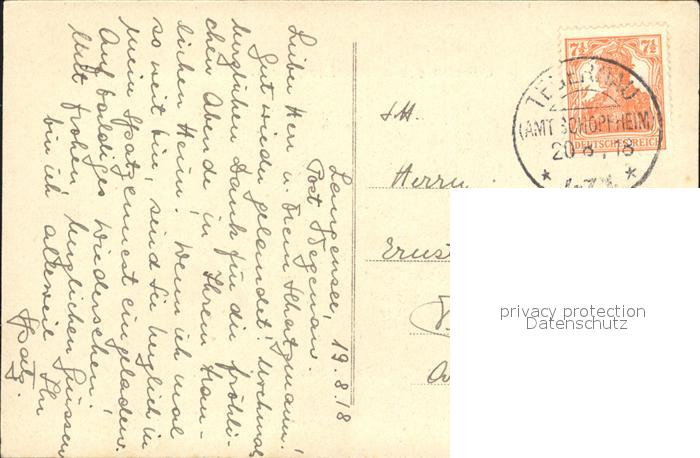 Langensee, 19.8.18
Post Tegernau.
Lieber Herr u. Frein Schatzmann!
Gut wieder gelandet! Nochmals
herzlichen Dank für die fröhli-
chen Abende in Ihrem trau-
lichen Heim! Wenn ich mal
so weit bin, sind Sie herzlich in
mein Spatzennest eingeladen.
Auf baldiges Wiedersehen!
Mit frohen herzlichen Grüssen
bin ich alleweil Ihr
Spatz.
7½ 7½
DEUTSCHES REICH
TEGERNAU
(AMT SCHOPFHEIM)
20 8 18
S.H.
Herrn
Ernst
privacy protection
Datenschutz